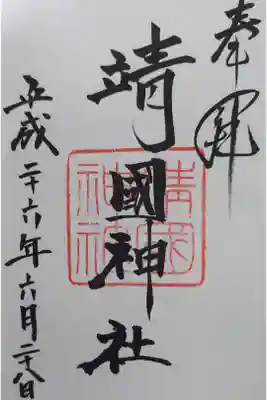 奉拝
靖國神社
靖国神社
平成二十六年六月二十八日